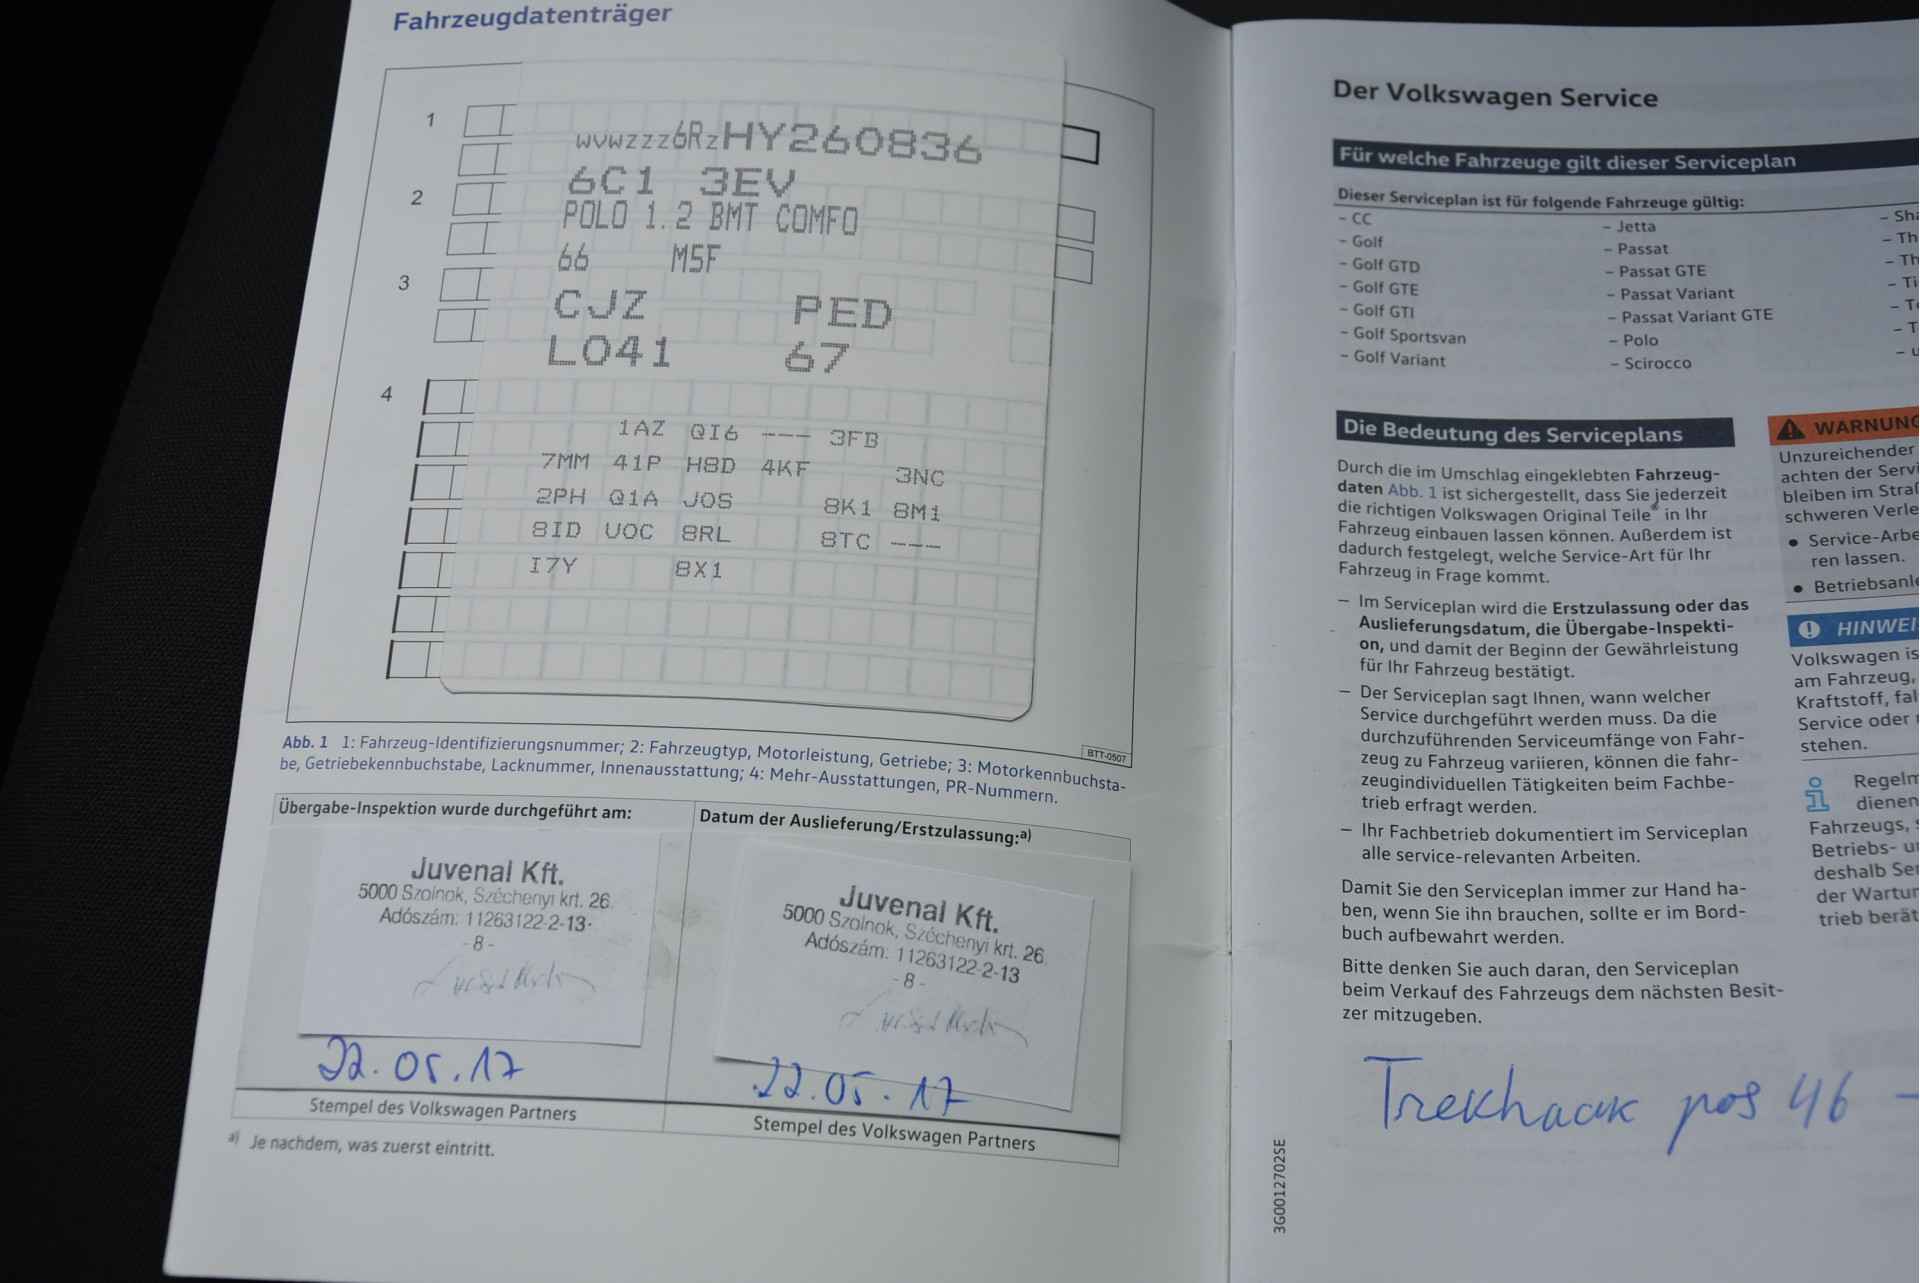 Fahrzeugdatenträger
1
WVWZZZ6RZHY260836
6C1 3EV
2
POLO 1.2 BMT COMFO
66 M5F
3
CJZ PED
L041 67
4
1AZ QI6 --- 3FB
7MM 41P H8D 4KF 3NC
2PH Q1A J0S 8K1 8M1
8ID U0C 8RL 8TC ---
I7Y 8X1
BTT-0507
Abb. 1 1: Fahrzeug-Identifizierungsnummer; 2: Fahrzeugtyp, Motorleistung, Getriebe; 3: Motorkennbuchsta-
be, Getriebekennbuchstabe, Lacknummer, Innenausstattung; 4: Mehr-Ausstattungen, PR-Nummern.
Übergabe-Inspektion wurde durchgeführt am:
Juvenal Kft.
5000 Szolnok, Széchenyi krt. 26.
Adószám: 11263122-2-13
-8-
22.05.17
Stempel des Volkswagen Partners
Datum der Auslieferung/Erstzulassung:a)
Juvenal Kft.
5000 Szolnok, Széchenyi krt. 26.
Adószám: 11263122-2-13
-8-
22.05.17
Stempel des Volkswagen Partners
a) Je nachdem, was zuerst eintritt.
Der Volkswagen Service
Für welche Fahrzeuge gilt dieser Serviceplan
Dieser Serviceplan ist für folgende Fahrzeuge gültig:
– CC
– Golf
– Golf GTD
– Golf GTE
– Golf GTI
– Golf Sportsvan
– Golf Variant
– Jetta
– Passat
– Passat GTE
– Passat Variant
– Passat Variant GTE
– Polo
– Scirocco
– Sha
– Th
– Th
– Ti
– To
– T
– u
Die Bedeutung des Serviceplans
Durch die im Umschlag eingeklebten Fahrzeug-
daten Abb. 1 ist sichergestellt, dass Sie jederzeit
die richtigen Volkswagen Original Teile® in Ihr
Fahrzeug einbauen lassen können. Außerdem ist
dadurch festgelegt, welche Service-Art für Ihr
Fahrzeug in Frage kommt.
– Im Serviceplan wird die Erstzulassung oder das
Auslieferungsdatum, die Übergabe-Inspekti-
on, und damit der Beginn der Gewährleistung
für Ihr Fahrzeug bestätigt.
– Der Serviceplan sagt Ihnen, wann welcher
Service durchgeführt werden muss. Da die
durchzuführenden Serviceumfänge von Fahr-
zeug zu Fahrzeug variieren, können die fahr-
zeugindividuellen Tätigkeiten beim Fachbe-
trieb erfragt werden.
– Ihr Fachbetrieb dokumentiert im Serviceplan
alle service-relevanten Arbeiten.
Damit Sie den Serviceplan immer zur Hand ha-
ben, wenn Sie ihn brauchen, sollte er im Bord-
buch aufbewahrt werden.
Bitte denken Sie auch daran, den Serviceplan
beim Verkauf des Fahrzeugs dem nächsten Besit-
zer mitzugeben.
WARNUNG
Unzureichender
achten der Servi
bleiben im Straß
schweren Verle
● Service-Arbe
ren lassen.
● Betriebsanle
HINWEI
Volkswagen is
am Fahrzeug,
Kraftstoff, fal
Service oder
stehen.
Regelm
dienen
Fahrzeugs, S
Betriebs- u
deshalb Ser
der Wartun
trieb berät
Trekhaak pos 46 –
3G0012702SE